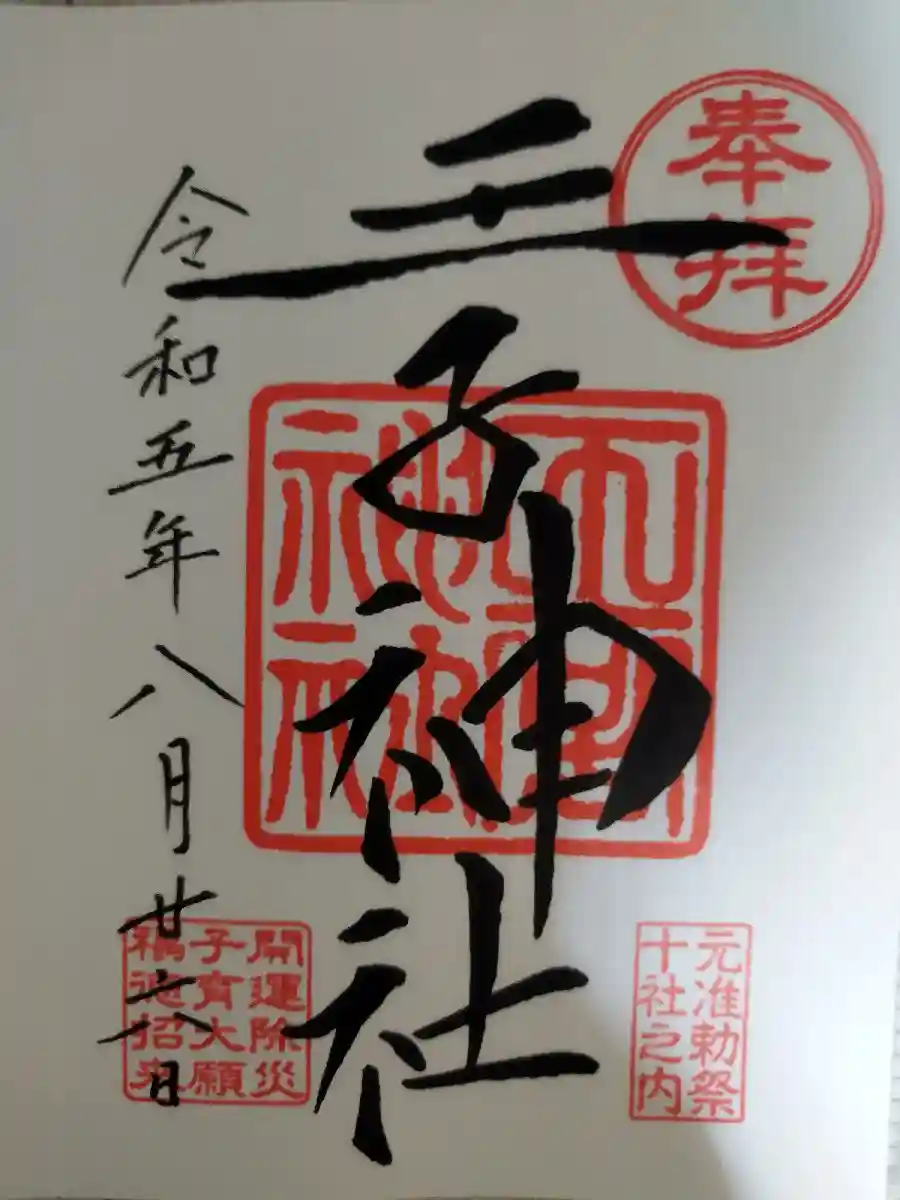 奉拝
王子神社
元准勅祭
十社之内
開運除災
子育大願
福徳招来
令和五年八月廿六日